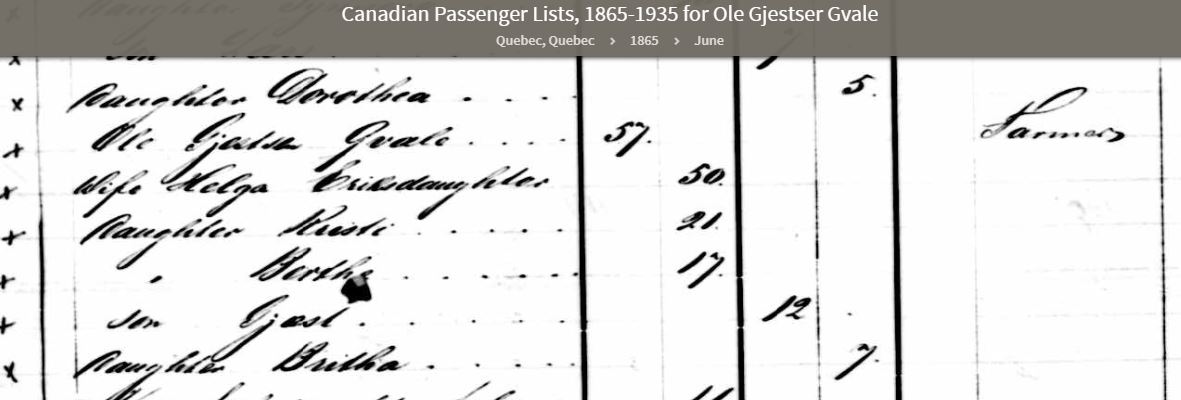 Canadian Passenger Lists, 1865-1935 for Ole Gjestser Gvale
Quebec, Quebec > 1865 > June
x
x Daughter Dorothea . . . 5.
x Ole Gjestsen Gvale . . . . 57. Farmer
x Wife Helga Eriksdaughter 50.
x Daughter Kristi . . . . . 21.
x " Bertha . . . . . 17.
x son Gjest . . . . . 12 .
x Daughter Britha . . . . 7.